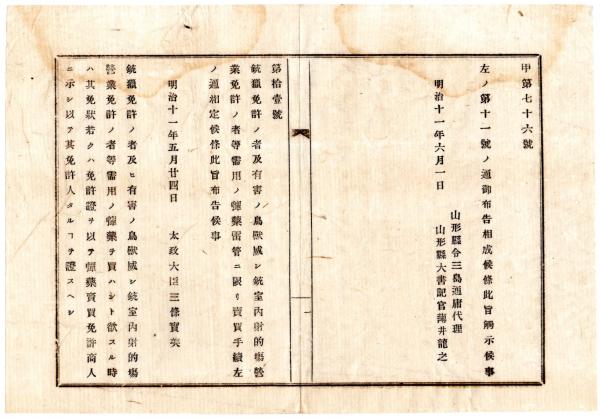 甲第七十六號
左ノ第十一號ノ通御布告相成候條此旨觸示候事
山形縣令三島通庸代理
明治十一年六月一日　山形縣大書記官薄井龍之
第拾壹號
銃獵免許ノ者及有害ノ鳥獸威シ銃室內射的塲營
業免許ノ者等需用ノ彈藥雷管ニ限リ賣買手續左
ノ通相定候條此旨布告候事
明治十一年五月廿四日　太政大臣三條實美
銃獵免許ノ者及ヒ有害ノ鳥獸威シ銃室內射的塲
營業免許ノ者等需用ノ彈藥ヲ買ハント欲スル時
ハ其免狀若クハ免許證ヲ以テ彈藥賣買免許商人
ニ示シ以テ其免許人タルヿヲ證スヘシ